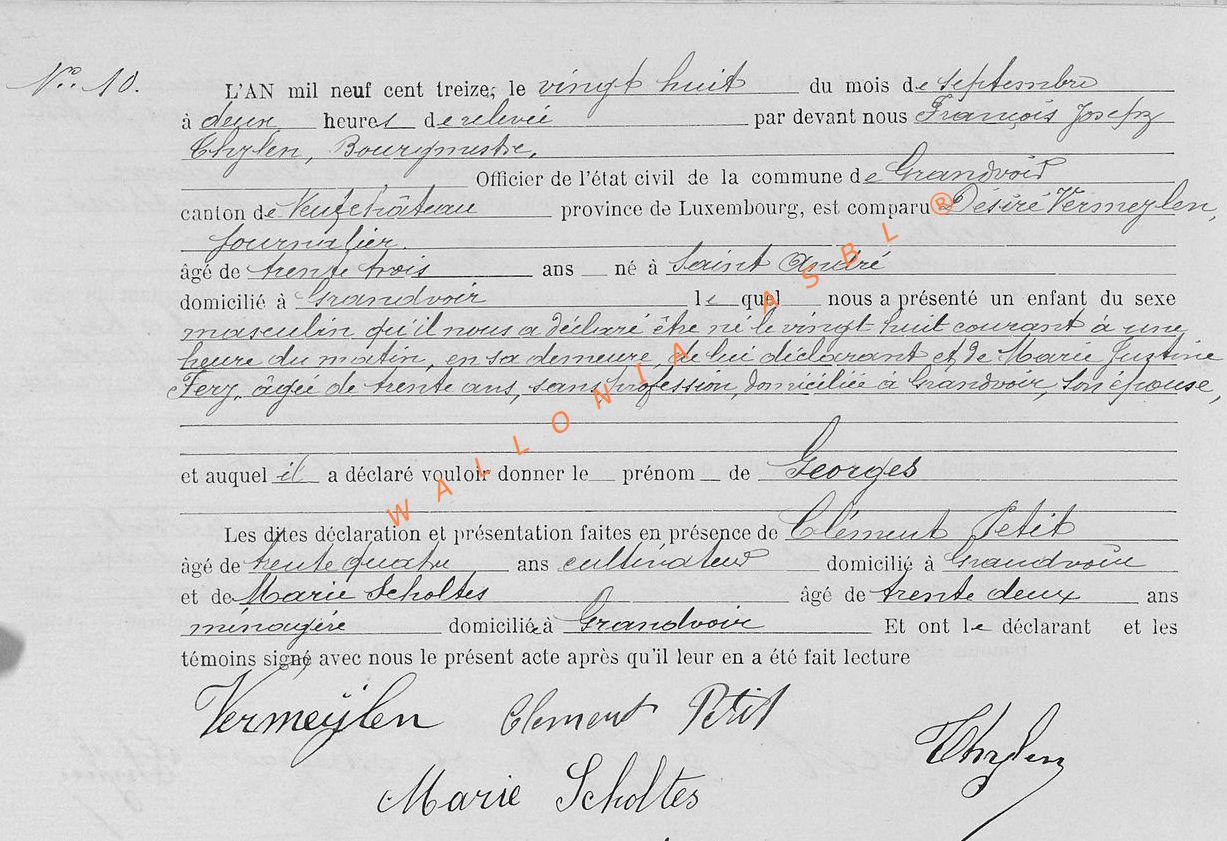 No. 10.
L'AN mil neuf cent treize, le vingt huit du mois de septembre
à deux heures de relevée par devant nous François Joseph
Thylen, Bourgmestre,
Officier de l'état civil de la commune de Grandvoir
canton de Neufchâteau province de Luxembourg, est comparu Désiré Vermeylen,
journalier.
âgé de trente trois ans né à Saint André
domicilié à Grandvoir le quel nous a présenté un enfant du sexe
masculin qu'il nous a déclaré être né le vingt huit courant à une
heure du matin, en sa demeure, de lui déclarant et de Marie Justine
âgée de trente ans, sans profession, domiciliée à Grandvoir, son épouse,
et auquel il a déclaré vouloir donner le prénom de Georges
Les dites déclaration et présentation faites en présence de Clément Petit
âgé de trente quatre ans cultivateur domicilié à Grandvoir
et de Marie Scholtes âgé de trente deux ans
ménagère domiciliée à Grandvoir Et ont le déclarant et les
témoins signé avec nous le présent acte après qu'il leur en a été fait lecture
Vermeÿlen Clement Petit
Thylen
Marie Scholtes
WALLONIA ASBL ®